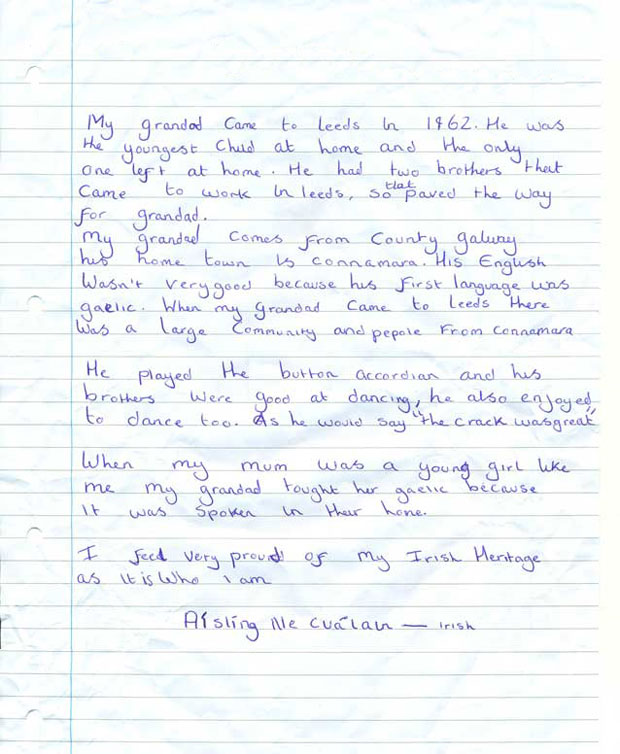 My grandad Came to leeds In 1962. He was
the youngest Child at home and the only
one left at home. He had two brothers that
Came to work In leeds, so that paved the way
for grandad.
My grandad comes from County galway
his home town Is connamara. His English
Wasn't very good because his first language was
gaelic. When my grandad Came to Leeds there
was a large Community and pepole From Connamara
He played the button accordian and his
brothers were good at dancing, he also enjoyed
to dance too. As he would say "the crack was great"
When my mum was a young girl like
me my grandad tought her gaelic because
It was Spoken In their home.
I feel very proud of my Irish Heritage
as It is Who I am
Aísling Ne Cuálain — Irish